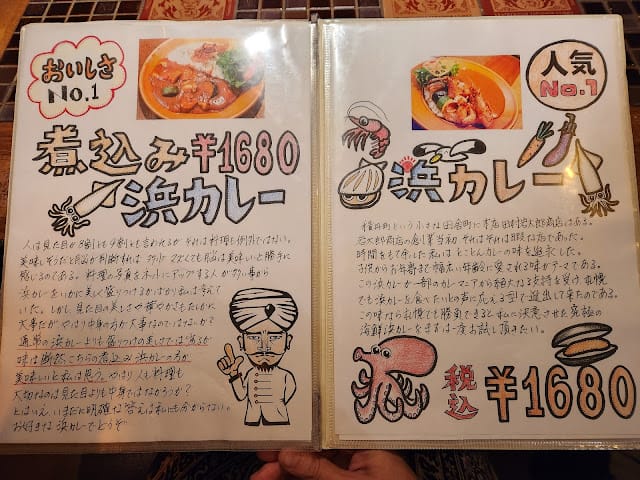 おいしさ
No.1
煮込み ¥1680
浜カレー
人は見た目が8割とも9割とも言われるが それは料理も例外ではない。
美味しそうだと脳が判断すれば
感じるのである。料理の写真をネットにアップする人が
浜カレーをいかに美しく盛りつけるかばかり私は考えて
いた。しかし見た目の美しさや華やかさもたしかに
大事だが やはり中身の方が大事なのではないか?
通常の浜カレーよりも盛りつけの美しさでは劣るが
味は断然こちらの煮込み浜カレーの方が
美味しいと私は思う。やはり人も料理も
大切なのは見た目よりも中身ではなかろうか?
とはいえ、いまだに明確な答えは私にも分からない。
お好きな浜カレーでどうぞ
人気
No.1
浜カレー
という小さな田舎町に本店
創業当初 それはそれは暇な店であった。
時間をもて余した私はとことんカレーの味を追求した。
子供からお年寄まで幅広い年齢に愛される味がテーマである。
この浜カレーが一部のカレーマニアから絶大なる支持を受け
でも浜カレーを食べたいとの声に応える型で進出して来たのである。
この味なら札幌でも勝負できると私に決意させた究極の
海鮮浜カレーをまずは一度お試し頂きたい。
税込 ¥1680